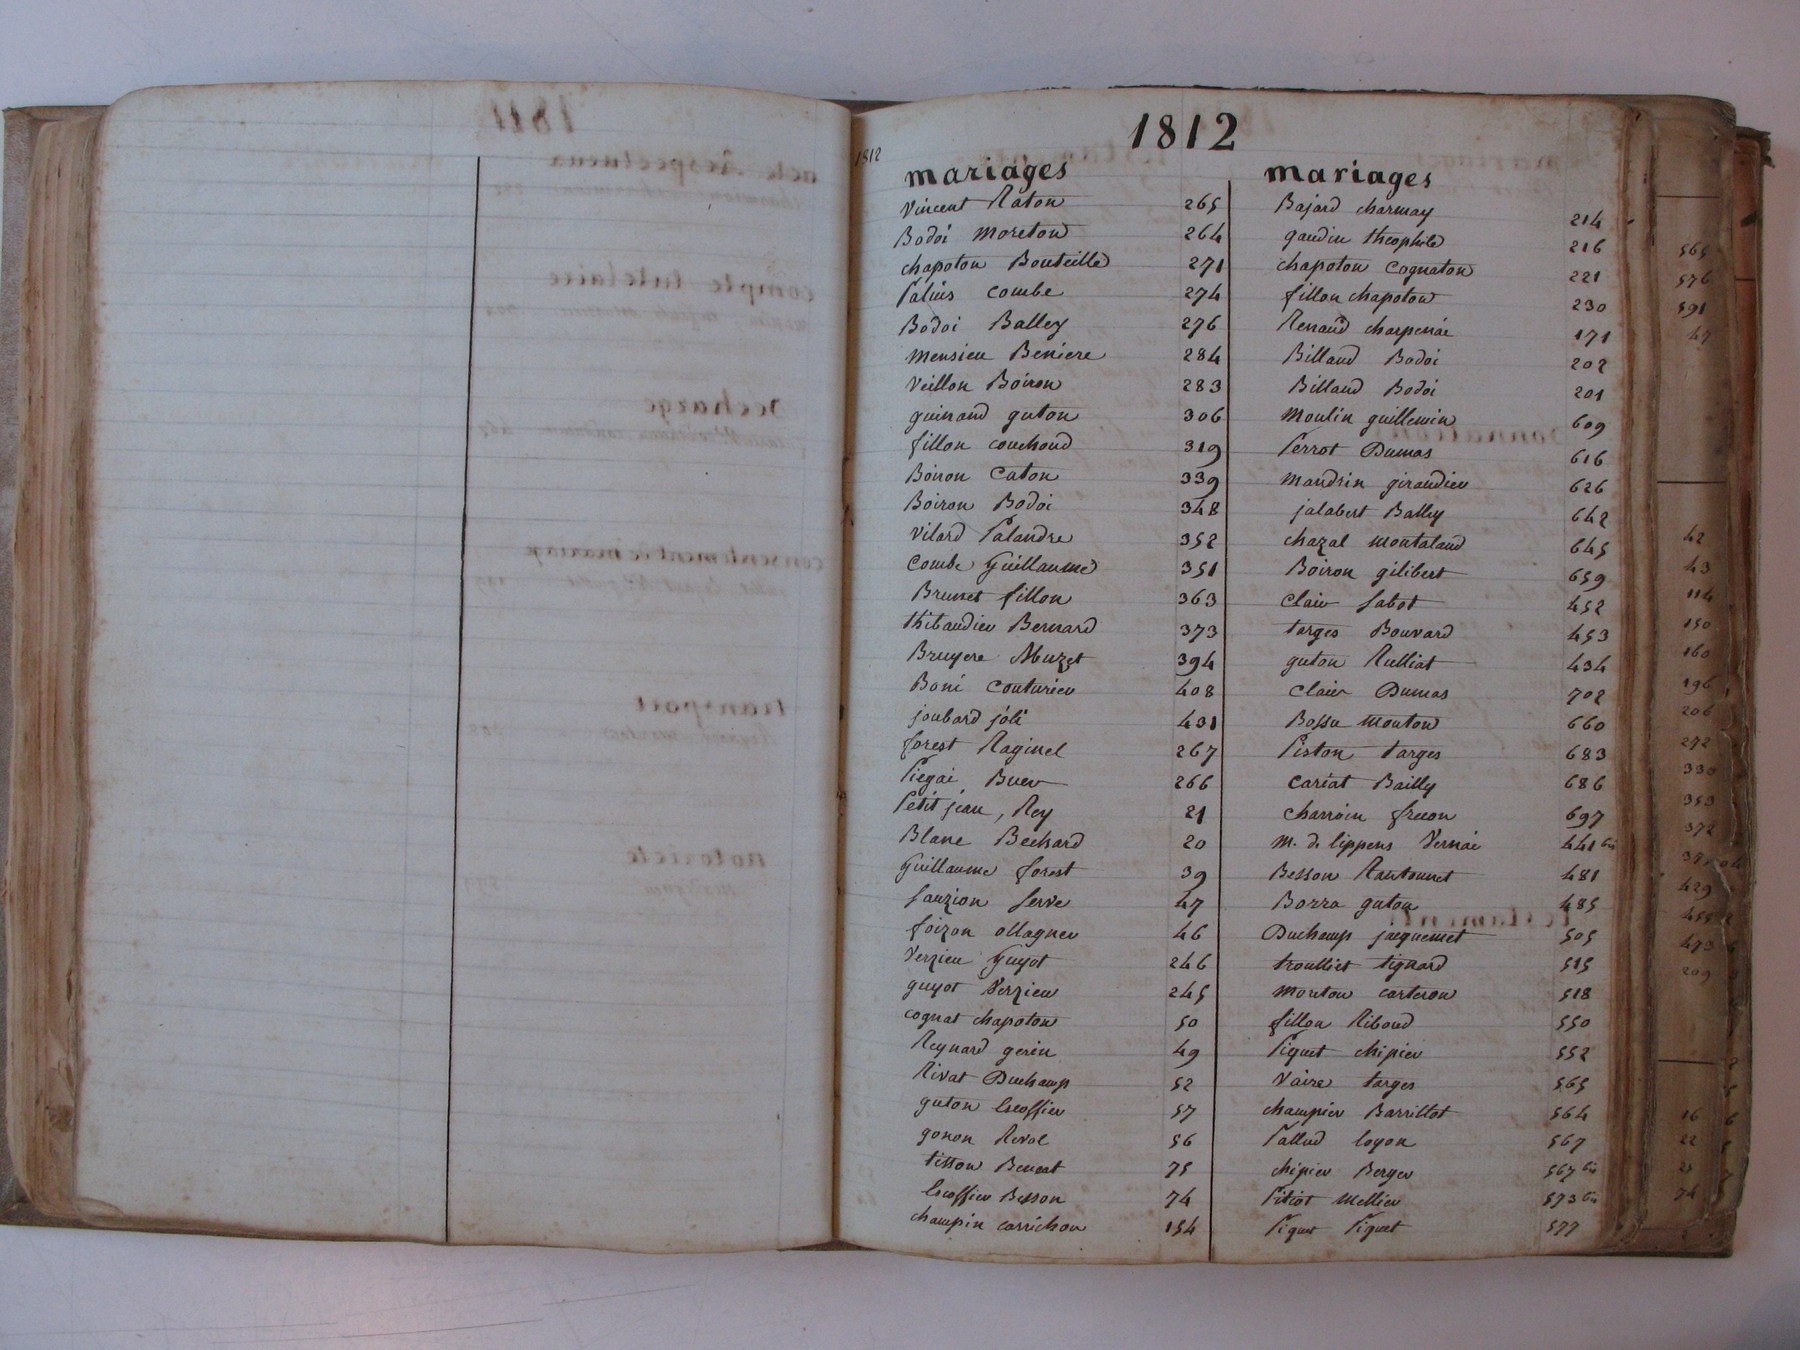 1812
1812
mariages
Vincent Raton 265
Bodoi moreton 264
chapoton Bouteille 271
Paluis combe 274
Bodoi Balley 276
mensieu Beniere 284
Veillon Boiron 283
guinand guton 306
fillon couchoud 319
Boiron Caton 339
Boiron Bodoi 348
Vilard Palandre 352
Combe Guillaume 351
Brunet fillon 363
thibaudier Bernard 373
Bruyere Muzet 394
Boni couturier 408
joubard joli 431
forest Raginel 267
Piegai Buer 266
Petit jean, Rey 21
Blanc Bechard 20
Guillaume forest 39
Sauzion Serve 47
foizon ollagner 46
Verzieu Guyot 246
guyot Verzieu 245
cognat chapoton 50
Reynard gerin 49
Rivat Duchamp 52
guton Escoffier 57
gonon Revol 56
tisson Benoit 75
Escoffier Besson 74
champin corrichon 154
mariages
Bajard charmay 214
gaudin theophile 216
chapoton Cognaton 221
fillon chapoton 230
Renaud charpenai 171
Billaud Bodoi 202
Billaud Bodoi 201
Moulin guillemin 609
Perrot Dumas 616
mandrin giraudier 626
jalabert Balley 642
chazal montaland 645
Boiron gilibert 659
Clair Sabot 452
targes Bouvard 453
guton Rulliat 434
Clair Dumas 702
Bossu mouton 660
Piston targes 683
Cariat Bailly 686
charroin frecon 697
m. de lippens Vernai 441 bis
Besson Rantonnet 481
Borra guton 485
Duchamp jacquemet 505
troulliet tignard 515
moreton carteron 518
fillon Riboud 550
Piquet chipier 552
Vaire targes 565
champier Barrillot 564
Pallud loyon 567
chipier Berger 567 bis
Pitiot mellier 573 bis
Piquet Piquet 577
565
576
591
47
42
43
114
150
160
196
206
272
330
353
372
429
455
473
209
16
22
25
74